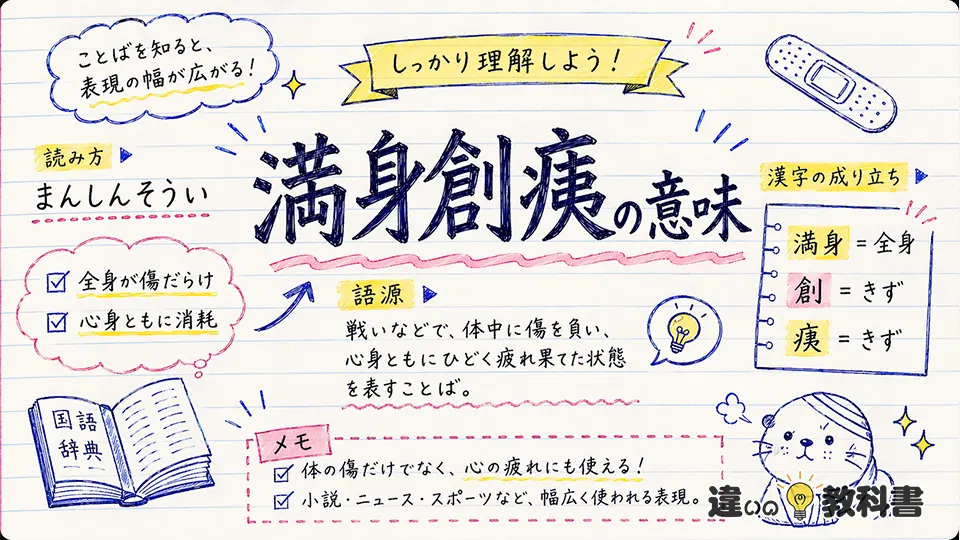 ことばを知ると、
表現の幅が広がる！
しっかり理解しよう！
読み方
まんしんそうい
満身創痍の意味
漢字の成り立ち
満身 = 全身
創 = きず
痍 = きず
全身が傷だらけ
心身ともに消耗
語源
戦いなどで、体中に傷を負い、
心身ともにひどく疲れ果てた状態
を表すことば。
国語
辞典
メモ
体の傷だけでなく、心の疲れにも使える！
小説・ニュース・スポーツなど、幅広く使われる表現。
違いの教科書